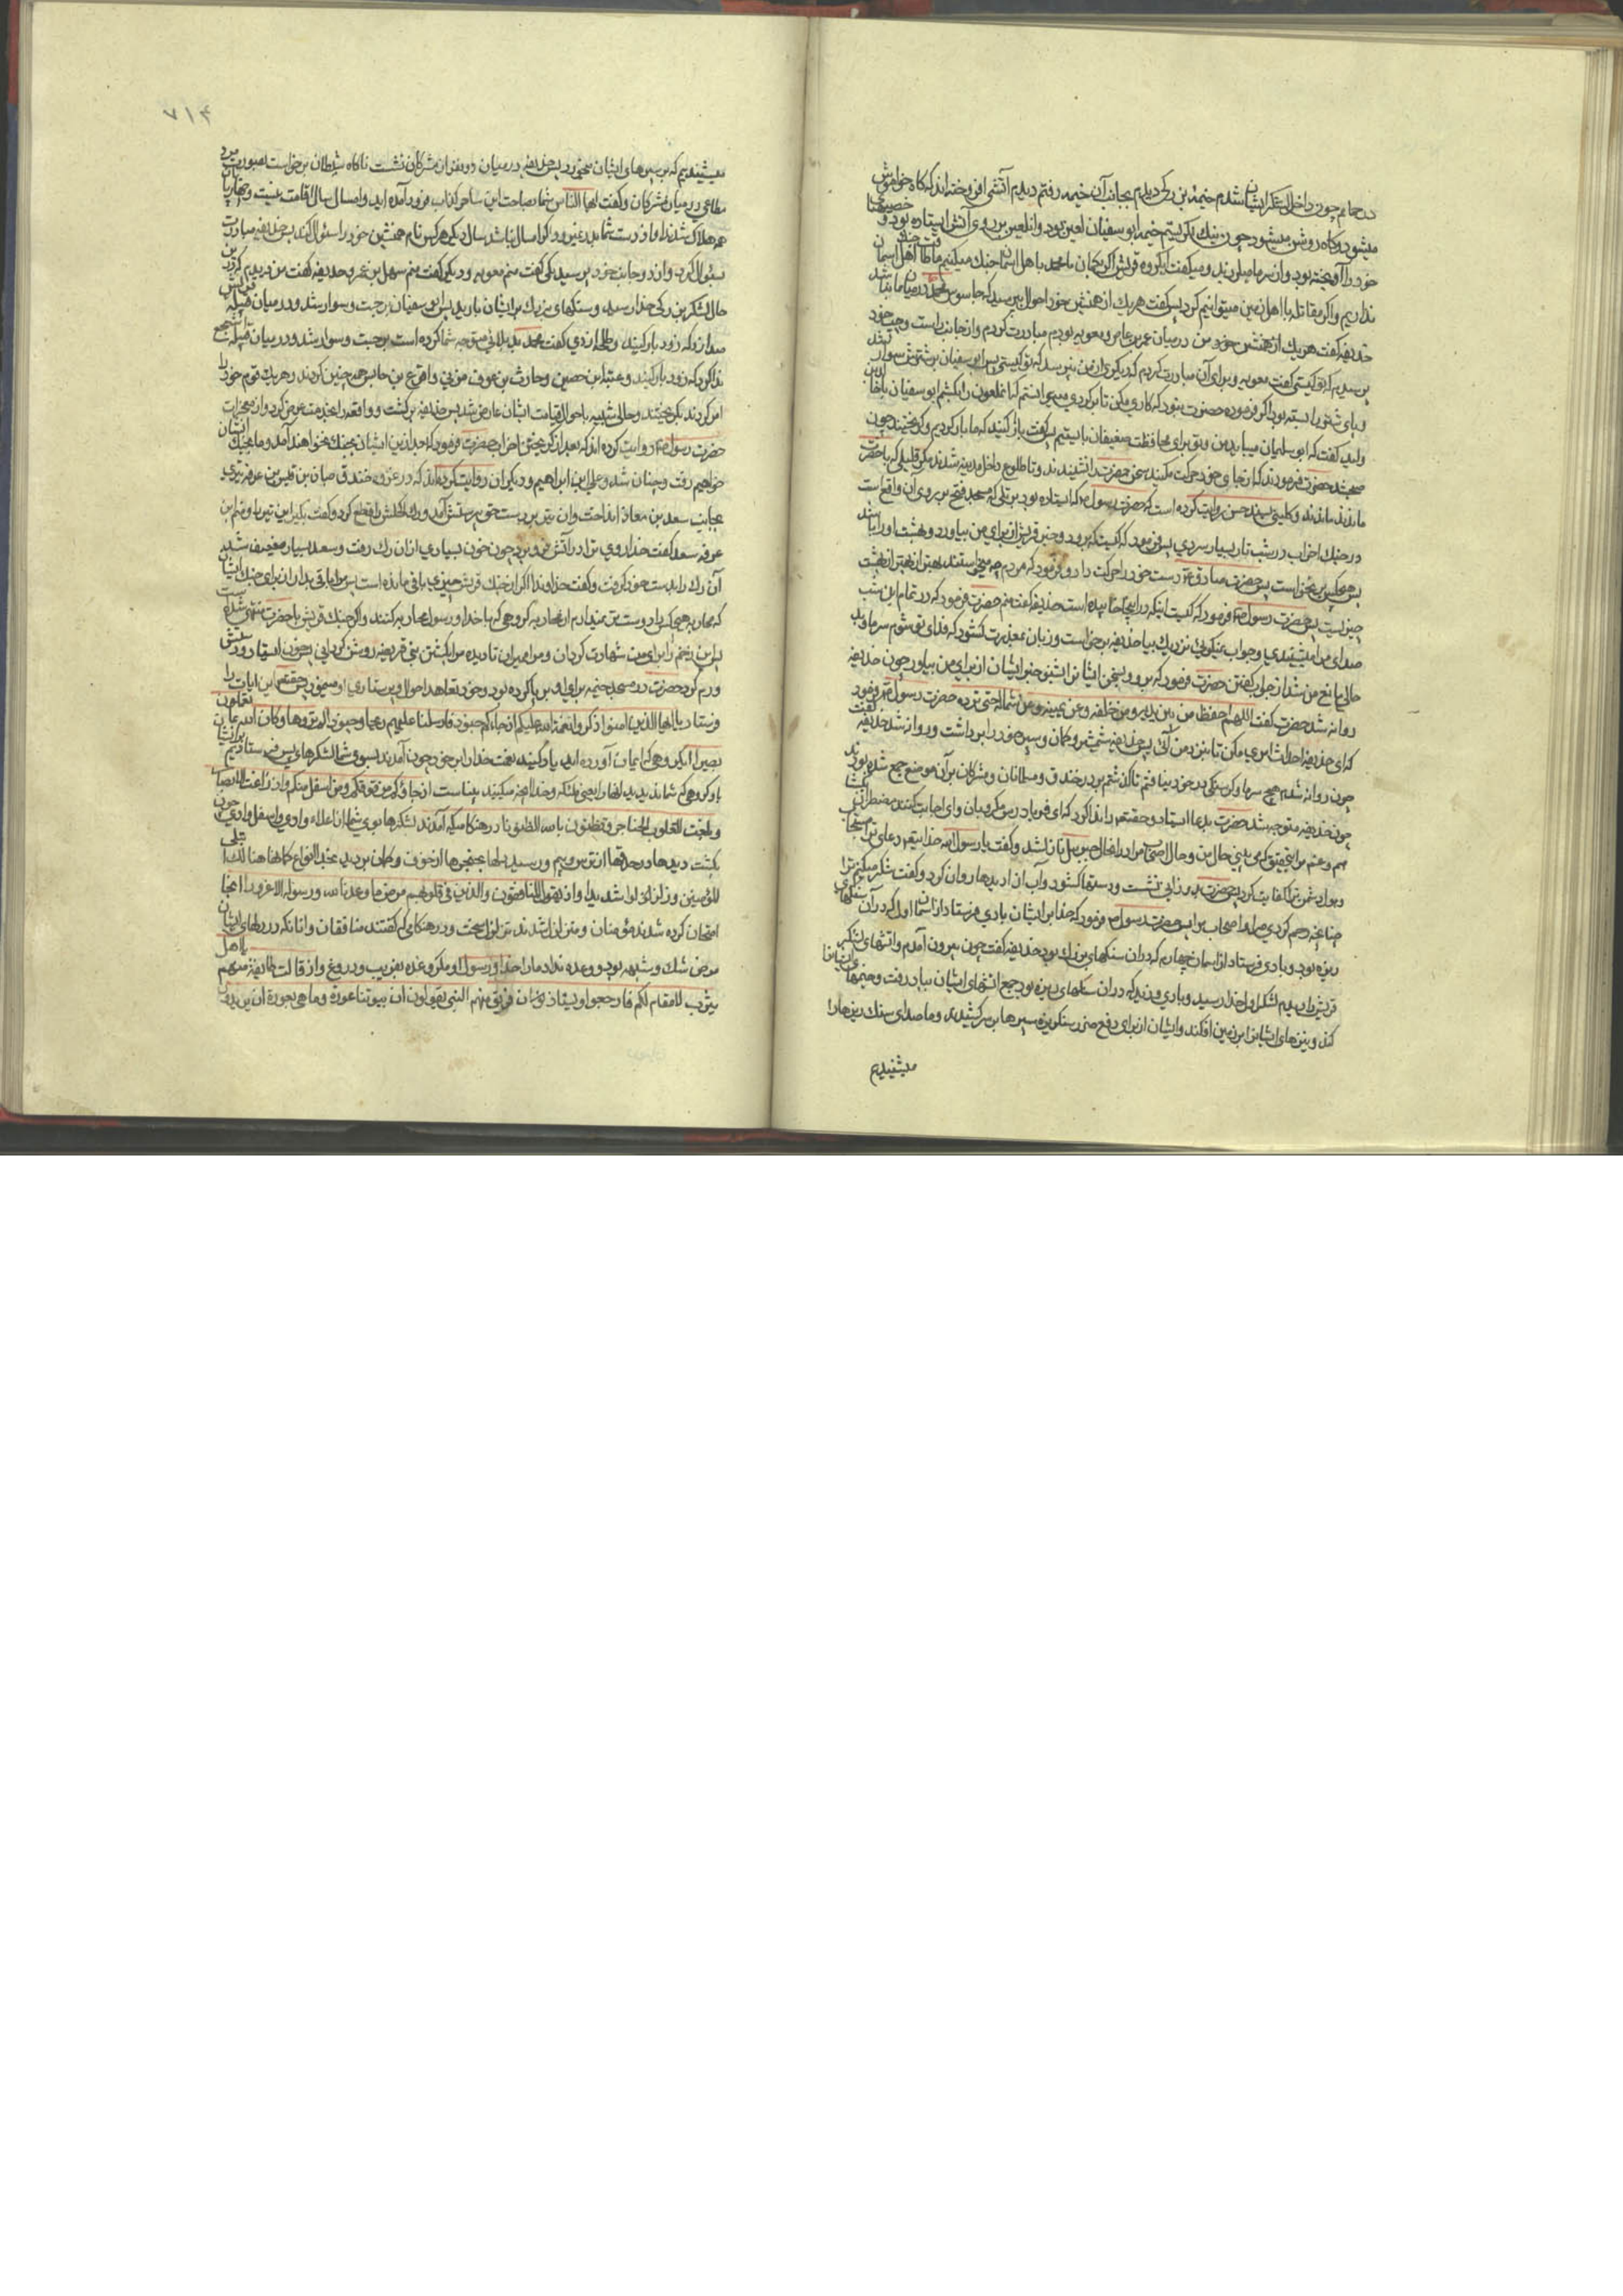 در حمام چون داخل لشکر ایشان شدم خیمهٔ بزرگی دیدم بجانب آن خیمه رفتم دیدم آتشی افروخته‌اند که گاه خواموش
میشود و گاه روشن میشود چون نیك نگریستم خیمه ابو سفیان لعین بود و آن لعین بر روی آتش ایستاده بود و خصیهها
خود را آویخته بود و از سرما میلرزید و میگفت ای گروه قریش اگر بگمان محمد با اهل اسمان جنك میکنیم ما طاقت جنك اهل اسمان
نداریم و اگر مقاتله با اهل زمین میتوانیم کرد پس گفت هر یك از همنشین خود احوال بپرسید که جاسوس محمد در میان ما نباشد
حذیفه گفت من در میان عمرو بن عاص و معویه بودم مبادرت کردم و از جانب راست و چپ خود
پرسیدم که تو کیستی گفت معویه و برای آن مبادرت کردم که دیگری از من نپرسد که تو کیستی پس ابو سفیان بر شتر خود سوار شد
و پای شتر را بسته بود و اگر فرموده حضرت نبود که کاری مکن تا برگردی میتوانستم که آن ملعون را بکشم ابو سفیان با خالد بن
ولید گفت که ابو سلیمان میباید من و تو برای محافظت ضعیفان بایستیم پس گفت بار کنید که ما بار کردیم و گریختند چون
صبح شد حضرت فرمودند که از جای خود حرکت مکنید سخن حضرت را نشنیدند و تا طلوع داخل مدینه شدند مگر قلیلی که با حضرت
ماندند و کلینی بسند حسن روایت کرده است که حضرت رسول ص ایستاده بود بر تلی که مسجد فتح بر روی آن واقع است
در جنك احزاب در شب تار بسیار سردی پس فرمود که کیست که برود و خبر قریش را برای من بیاورد و بهشت او را باشد
پس هیچکس بر نخواست پس حضرت صادق ع دست خود را حرکت داد و فرمود که مردم چه میخواستند بهتر از بهشت
چیزیست پس حضرت رسول ص فرمود که کیست اینکه در اینجا خوابیده است حذیفه گفت منم حضرت فرمود که در تمام این شب
صدای مرا میشنیدی و جواب نمیگوئی نزدیك بیا حذیفه برخواست و زبان بمعذرت گشود که فدای تو شوم سرما و بد
حالی مانع من شد از جواب گفتن حضرت فرمود که برو و سخن ایشان را بشنو و خبر ایشان را برای من بیاور چون حذیفه
روانه شد حضرت گفت اللهم احفظه من بین یدیه و من خلفه و عن یمینه و عن شماله حتی ترده حضرت رسول ص فرمود
که ای حذیفه احداث امری مکن تا بنزد من آئی پس حذیفه شمشیر و کمان و سپر خود را برداشت و روانه شد حذیفه گفت
چون روانه شدم هیچ سرما و گرسنگی در خود نیافتم تا گذشتم بر در خندق و مسلمانان و مشرکان بر آن موضع جمع شده بودند
چون حذیفه متوجه شد حضرت بدعا ایستاد و حقتعالی را ندا کرد که ای فریادرس مکروبان و ای اجابت کننده مضطران بگشا
هم و غم مرا بتحقیق که می بینی حال من و حال اصحاب مرا در انحال جبرئیل نازل شد و گفت یا رسول الله خدا شنید دعای ترا
و هول دشمن ترا کفایت کرد پس حضرت بدو زانو نشست و دستها گشود و آب از دیدها روان کرد و گفت شکر میکنم ترا
چنانچه رحم کردی مرا و اصحاب مرا پس حضرت رسول ص فرمود که خدا بر ایشان بادی فرستاد از اسمان اول که در آن سنگهای
ریزه بود و بادی فرستاد از اسمان چهارم که در ان سنگهای بزرك بود حذیفه گفت چون بیرون آمدم و اتشهای لشکر
قریش را دیدم لشکر اول خدا رسید و بادی وزید که در ان سنگهای ریزه بود جمیع آتشهای ایشان بباد رفت و خیمهای ایشان را
کند و نیزهای ایشان را بر زمین افکند و ایشان از برای دفع ضرر سنکریزه سپرها بر سر کشیدند و ما صدای سنك ریزها را
میشنیدیم
۷۱۴
میشنیدیم که بر سپرهای ایشان میخورد پس حذیفه در میان دو نفر از مشرکان نشست ناگاه شیطان برخواست بصورت مرد
مطاعی در میان مشرکان و گفت ایها الناس شما بساحت این ساحر کذاب فرود آمده اید و امسال سال اقامت نیست و چهارپایان
همه هلاك شدند او از دست شما بدر نمیرود اگر امسال نباشد سال دیگر هر کس نام همنشین خود را سئوال کند پس حذیفه مبادرت
بسئوال کرد و از دو جانب خود پرسید یکی گفت منم معویه و دیگری گفت منم سهل بن عمرو حذیفه گفت من ندیدم که درین
حال لشکر بزرك خدا رسید و سنگهای بزرك بر ایشان بارید پس ابو سفیان برجست و سوار شد و در میان قبیله قریش
صدا زد که زود بار کنید و طلحه ازدی گفت محمد بد بلائی متوجه شما کرده است برجست و سوار شد و در میان قبیله اشجع
ندا کرد که زود بار کنید و عیینة ابن حصین و حارث بن عوف مزنی و اقرع بن حابس همه چنین کردند و هر یك قوم خود را
امر کردند بگریختند و حالی شبیه باحوال قیامت ایشان عارض شد پس حذیفه برگشت و واقعه را بخدمت عرض کرد و از معجزات
حضرت رسول ص روایت کرده اند که بعد از گریختن احزاب حضرت فرمود که بعد ازین ایشان بجنك نخواهند آمد و ما بجنك ایشان
خواهیم رفت و چنان شد و علی ابن ابراهیم و دیگران روایت کرده اند که در غزوه خندق حبان بن قیس بن عرفه تیری
بجانب سعد بن معاذ انداخت و آن تیر بر دست حق پرستش آمد و رك اکحلش را قطع کرد و گفت بگیر این تیر را و منم ابن
عرفه سعد گفت خدا روی ترا در آتش فرو برد چون خون بسیاری از ان رك رفت و سعد بسیار ضعیف شد
آن رك را بدست خود گرفت و گفت خداوندا اگر از جنك قریش چیزی باقی مانده است پس مرا باقی بدار از برای جنك ایشان
که محاربه هیچکس را دوست تر نمیدارم از محاربه گروهی که با خدا و رسول محاربه کنند و اگر جنك قریش با حضرت منتهی شده است
پس این زخم را برای من شهادت گردان و مرا نمیران تا دیده مرا بکشتن بنی قریظه روشن گردانی پس خون ایستاد و دستش
ورم کرد حضرت در مسجد خیمه برای او بر پا کرده بود و خود تعاهد احوال و پرستاری او مینمود پس حقتعالی این ایات را
فرستاد یا ایها الذین امنوا اذکروا نعمة الله علیکم اذ جائتکم جنود فارسلنا علیهم ریحا و جنودا لم تروها و کان الله بما تعملون
بصیرا ای گروهی که ایمان آورده اید یاد کنید نعمت خدا را بر خود چون آمدند بسوی شما لشکرهای پس فرستادیم بر ایشان
باد و گروهی که شما ندیدید انها را یعنی ملئکه و خدا بانچه میکنید بیناست اذ جاؤکم من فوقکم و من اسفل منکم و اذ زاغت الابصار
و بلغت القلوب الحناجر و تظنون بالله الظنونا در هنگامیکه آمدند لشکرها بسوی شما از اعلاء وادی و اسفل وادی و چون
بگشت دیدها در حدقها از ترس و بیم و رسید دلها بحنجرها از خوف و گمان بردید بخدا انواع گمانها هنالك ابتلی
المؤمنین و زلزلوا زلزالا شدیدا و اذ یقول المنافقون و الذین فی قلوبهم مرض ما وعدنا الله و رسوله الا غرورا انجا
امتحان کرده شدند مؤمنان و متزلزل شدند تزلزل سخت و در هنگامی که گفتند منافقان و انانکه در دلهای ایشان
مرض شك و شبهه بود و وعده نداد ما را خدا و رسول او مگر وعده بفریب و دروغ و اذ قالت طائفة منهم یا اهل
یثرب لا مقام لکم فارجعوا و یستاذن فریق منهم النبی یقولون ان بیوتنا عورة و ما هی بعورة ان یریدون